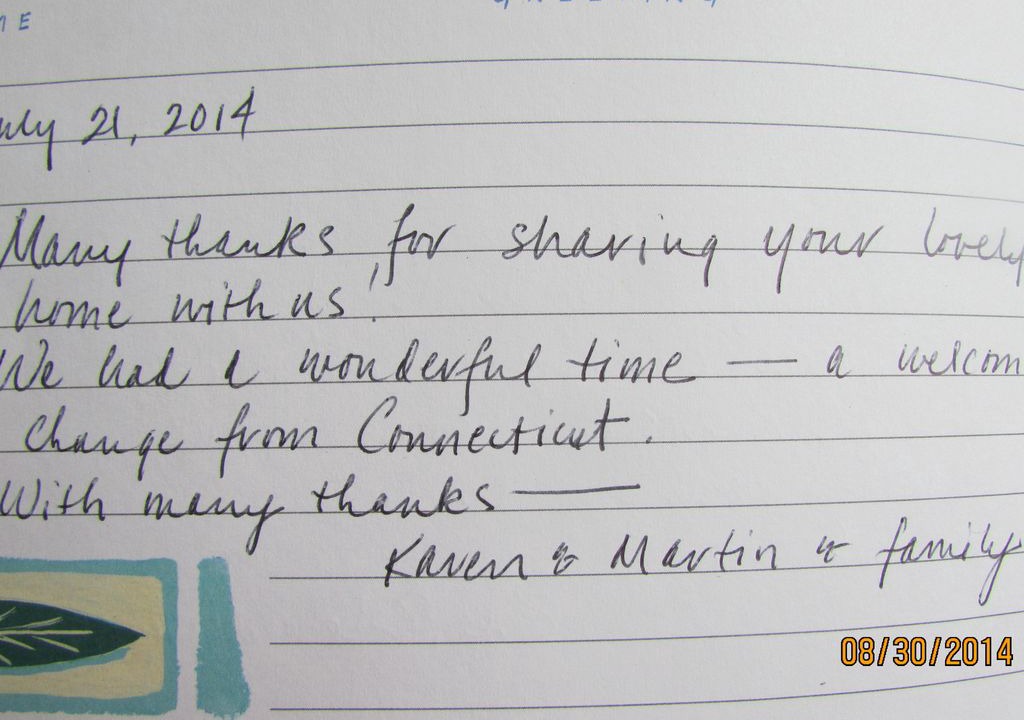 ME
uly 21, 2014
Many thanks for sharing your lovely
home with us!
We had a wonderful time — a welcom
change from Connecticut.
With many thanks —
Karen & Martin & family
08/30/2014